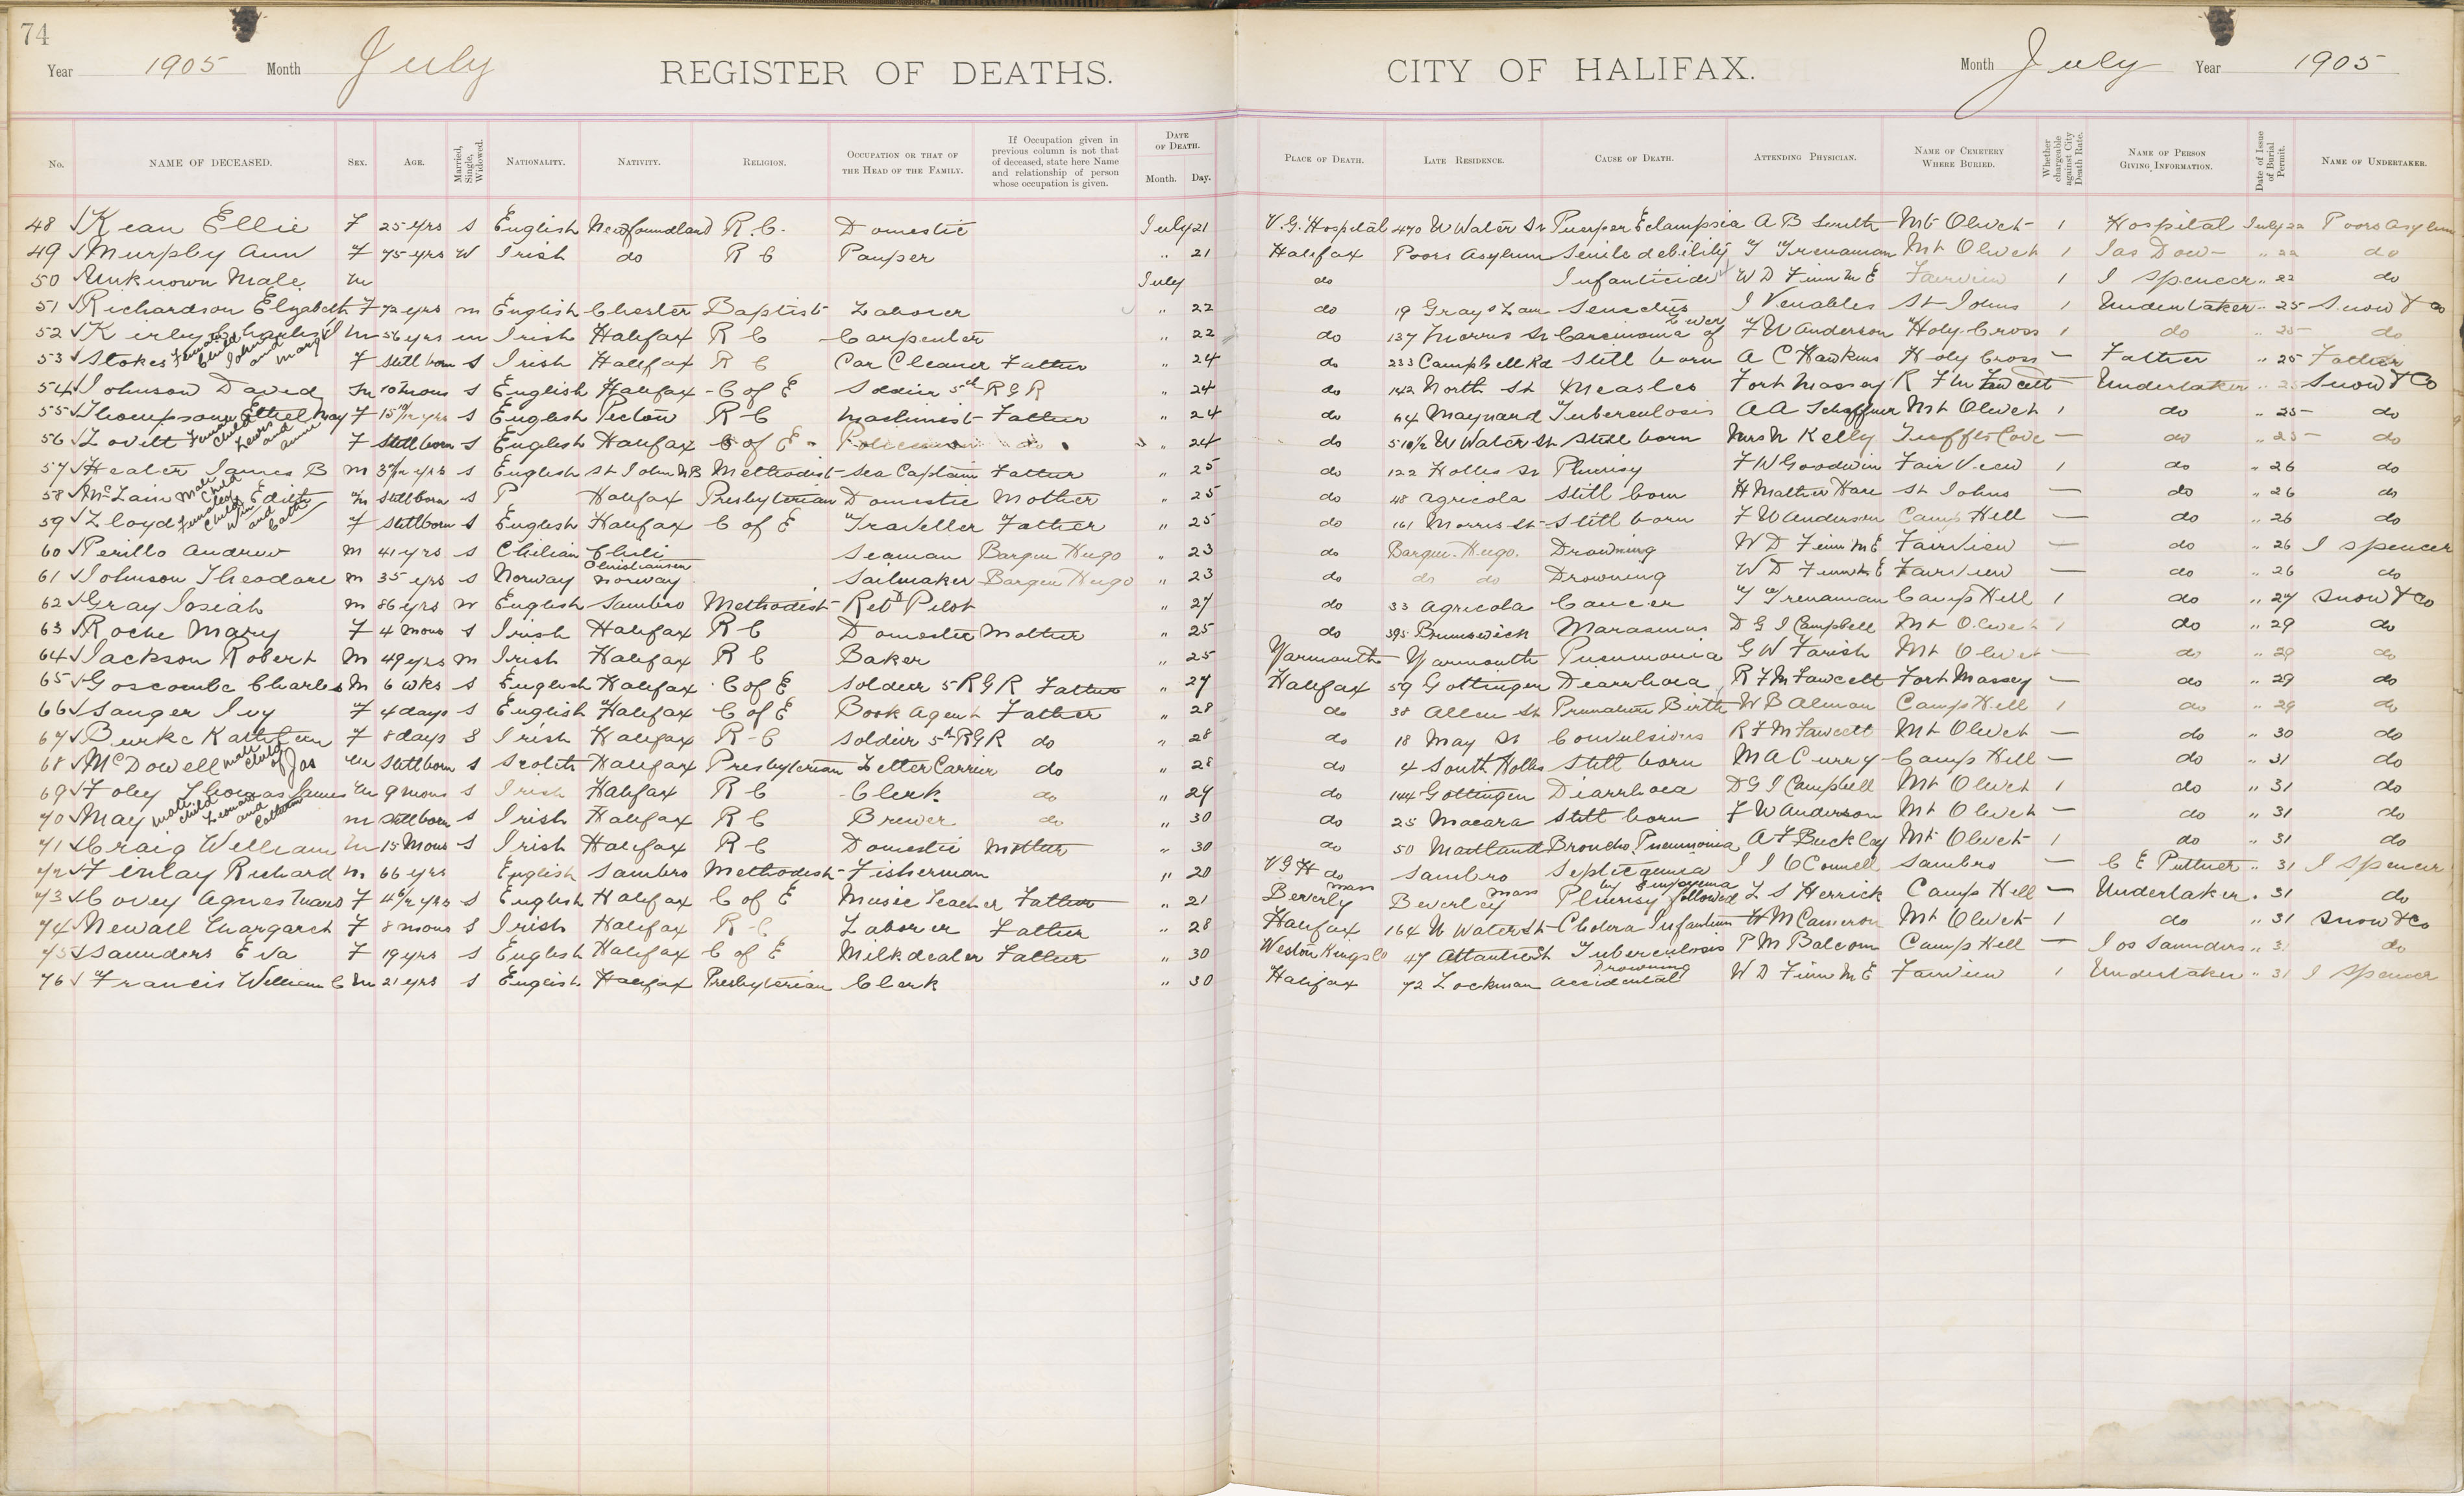 74
Year 1905 Month July REGISTER OF DEATHS. CITY OF HALIFAX. Month July Year 1905
No. NAME OF DECEASED. SEX. AGE. Married, Single, Widowed. NATIONALITY. NATIVITY. RELIGION. OCCUPATION OR THAT OF THE HEAD OF THE FAMILY. If Occupation given in previous column is not that of deceased, state here Name and relationship of person whose occupation is given. DATE OF DEATH. Month. Day. PLACE OF DEATH. LATE RESIDENCE. CAUSE OF DEATH. ATTENDING PHYSICIAN. NAME OF CEMETERY WHERE BURIED. Whether chargeable against City Death Rate. NAME OF PERSON GIVING INFORMATION. Date of Issue of Burial Permit. NAME OF UNDERTAKER.
48 Kean Ellie F 25 yrs S English Newfoundland R.C. Domestic July 21 V.G. Hospital 470 U Water St Puerper Eclampsia A B Smith Mt Olivet 1 Hospital July 22 Poors Asylum
49 Murphy Ann F 75 yrs W Irish do R C Pauper " 21 Halifax Poors Asylum Senile debility T Trenaman Mt Olivet 1 Jas Dow " 22 do
50 Unknown Male m July do Infanticide W D Finn M E Fairview 1 J Spencer " 22 do
51 Richardson Elizabeth F 72 yrs m English Chester Baptist Laborer " 22 do 19 Grays Lane Senectus J Venables St Johns 1 Undertaker " 25 Snow & Co
52 Kirby Charles J m 56 yrs m Irish Halifax R C Carpenter " 22 do 137 Morris St Carcinoma of Liver F W Anderson Holy Cross 1 do " 25 do
53 Stokes Female child John and Margt F Still born S Irish Halifax R C Car Cleaner Father " 24 do 233 Campbell Rd Still born A C Hawkins Holy Cross — Father " 25 Father
54 Johnson David m 10 mons S English Halifax C of E Soldier 5th R G R " 24 do 142 North St Measles Fort Massey R F M Fawcett — Undertaker " 25 Snow & Co
55 Thompson Ethel May F 15 10/12 yrs S English Pictou R C Machinist Father " 24 do 64 Maynard Tuberculosis A A Schaffner Mt Olivet 1 do " 25 do
56 Lovett Female child Lewis and Annie F Still born S English Halifax C of E Policeman do " 24 do 510 1/2 U Water St Still born Mrs N Kelly Tuffts Cove — do " 25 do
57 Heater James B m S English St John N B Methodist Sea Captain Father " 25 do 122 Hollis St Plurisy F W Goodwin Fair View 1 do " 26 do
58 McLain Male Child Edith m Still born S Halifax Presbyterian Domestic Mother " 25 do 48 Agricola Still born H Mather Hare St Johns — do " 26 do
59 Lloyd Female Child Wm E and Cath F Still born S English Halifax C of E Traveller Father " 25 do 161 Morris St Still born F W Anderson Camp Hill — do " 26 do
60 Perillo Andrew m 41 yrs S Chilian Chili Seaman Barque Hugo " 23 do Barque Hugo. Drowning W D Finn M E Fairview — do " 26 J Spencer
61 Johnson Theodore m 35 yrs S Norway Christiansen Norway Sailmaker Barque Hugo " 23 do do do Drowning W D Finn M E Fairview — do " 26 do
62 Gray Josiah m 86 yrs W English Sambro Methodist Retd Pilot " 27 do 33 Agricola Cancer T Trenaman Camp Hill 1 do " 27 Snow & Co
63 Roche Mary F 4 mons S Irish Halifax R C Domestic Mother " 25 do 395 Brunswick Marasmus D G J Campbell Mt Olivet 1 do " 29 do
64 Jackson Robert M 49 yrs m Irish Halifax R C Baker " 25 Yarmouth Yarmouth Pneumonia G W Farish Mt Olivet — do " 29 do
65 Goscombe Charles M 6 wks S English Halifax C of E Soldier 5 R G R Father " 27 Halifax 59 Gottingen Diarrhoea R F M Fawcett Fort Massey — do " 29 do
66 Sanger Ivy F 4 days S English Halifax C of E Book Agent Father " 28 do 38 Allen St Premature Birth W B Almon Camp Hill 1 do " 29 do
67 Burke Kathleen F 8 days S Irish Halifax R C Soldier 5th R G R do " 28 do 18 May St Convulsions R F M Fawcett Mt Olivet — do " 30 do
68 McDowell male child of Jas m Still born S Scotch Halifax Presbyterian Letter Carrier do " 28 do 4 South Hollis Still born M A Curry Camp Hill — do " 31 do
69 Foley Thomas James m 9 mons S Irish Halifax R C Clerk do " 29 do 144 Gottingen Diarrhoea D G J Campbell Mt Olivet 1 do " 31 do
70 May male child and m Still born S Irish Halifax R C Brewer do " 30 do 25 Macara Still born F W Anderson Mt Olivet — do " 31 do
71 Craig William m 15 Mons S Irish Halifax R C Domestic Mother " 30 do 50 Maitland Broncho Pneumonia A F Buckley Mt Olivet 1 do " 31 do
72 Finlay Richard m 66 yrs English Sambro Methodist Fisherman " 20 V G H do Sambro Septicaemia J J O Connell Sambro — C E Puttner " 31 J Spencer
73 Covey Agnes F 4 6/12 yrs S English Halifax C of E Music Teacher Father " 21 Beverly Mass Beverley Mass Plurisy followed by Empyema L S Herrick Camp Hill — Undertaker " 31 do
74 Newall Margaret F 8 mons S Irish Halifax R C Laborer Father " 28 Halifax 164 U Water St Cholera Infantum H M Cameron Mt Olivet 1 do " 31 Snow & Co
75 Saunders Eva F 19 yrs S English Halifax C of E Milkdealer Father " 30 Weston Kings Co 47 Atlantic St Tuberculosis P M Balcom Camp Hill — Jos Saunders " 31 do
76 Francis William C m 21 yrs S English Halifax Presbyterian Clerk " 30 Halifax 72 Lockman Accidental Drowning W D Finn M E Fairview 1 Undertaker " 31 J Spencer